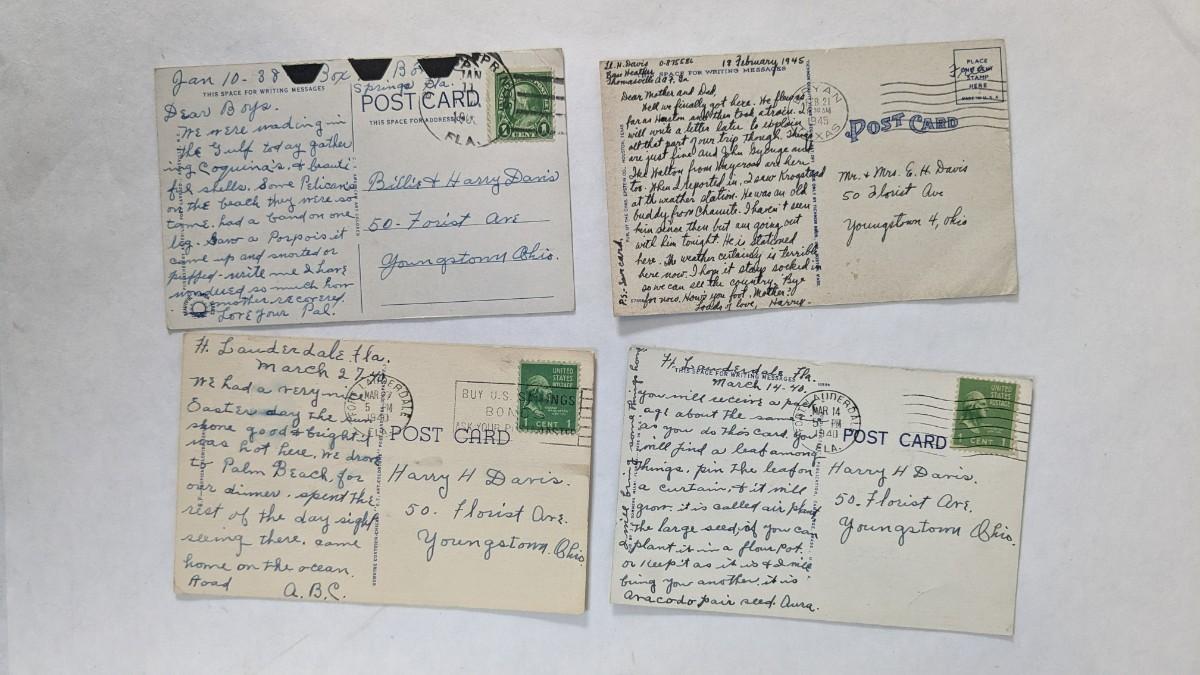 Jan 10-38 Box
Springs Fla.
THIS SPACE FOR WRITING MESSAGES
POST CARD
THIS SPACE FOR ADDRESS
JAN
FLA.
1 CENT 1
Dear Boys.
We were wading in
the Gulf today gather
ing Coquina's, & beauti
ful shells. Some Pelican's
on the beach they were so
tame, had a band on one
leg. Saw a Porpois it
came up and snorted or
puffed- write me I have
wondered so much how
mother recovered.
Love Your Pal.
Billie & Harry Davis
50- Forist Ave
Youngstown Ohio.
Lt. H. Davis 0-875586
Thomasville AAF, Ga
18 February 1945
SPACE FOR WRITING MESSAGES
POST CARD
PLACE
ONE CENT
STAMP
HERE
MADE IN U.S.A.
BRYAN
FEB 21
1945
TEXAS
Dear Mother and Dad,
Well we finally got here. We flew as
far as Houston and then took a train. I
will write a letter later to explain
all that part of our trip though. Things
are just fine and John George and
Ike Welton from Waycross are here
too. When I reported in, I saw Krogstead
at the weather station. He was an old
buddy from Chanute. I haven't seen
him since then but am going out
with him tonight. He is stationed
here. The weather certainly is terrible
here now. I hope it stays socked in
so we can see the country. 'Bye
for now. How's your foot, Mother?
Loads of love, Harry
Mr. & Mrs. E. H. Davis
50 Florist Ave
Youngstown 4, Ohio
Ft. Lauderdale Fla.
March 27-40
FORT LAUDERDALE
MAR 27
5 PM
1940
FLA.
BUY U.S. SAVINGS
BONDS
ASK YOUR POSTMASTER
UNITED
STATES
POSTAGE
1 CENT 1
POST CARD
We had a very nice
Easter day the sun
shone good & bright &
was hot here. We drove
to Palm Beach, for
our dinner, spent the
rest of the day sight
seeing there, came
home on the ocean
Road A.B.C.
Harry H Davis.
50. Florist Ave.
Youngstown. Ohio.
Ft. Lauderdale Fla.
THIS SPACE FOR WRITING MESSAGES
March-14-40.
FORT LAUDERDALE
MAR 14
PM
1940
FLA.
UNITED
STATES
POSTAGE
1 CENT 1
POST CARD
You will receive a pack
age about the same
as you do this card. You
will find a leaf among
things, pin the leaf on
a curtain, & it will
grow. it is called air plant
The large seed, if you can
plant it in a flour pot.
or keep it as it is & I will
bring you another, it is
Avacodo pair seed. Aura.
I will bring some things home
Harry H Davis.
50. Florist Ave.
Youngstown Ohio.